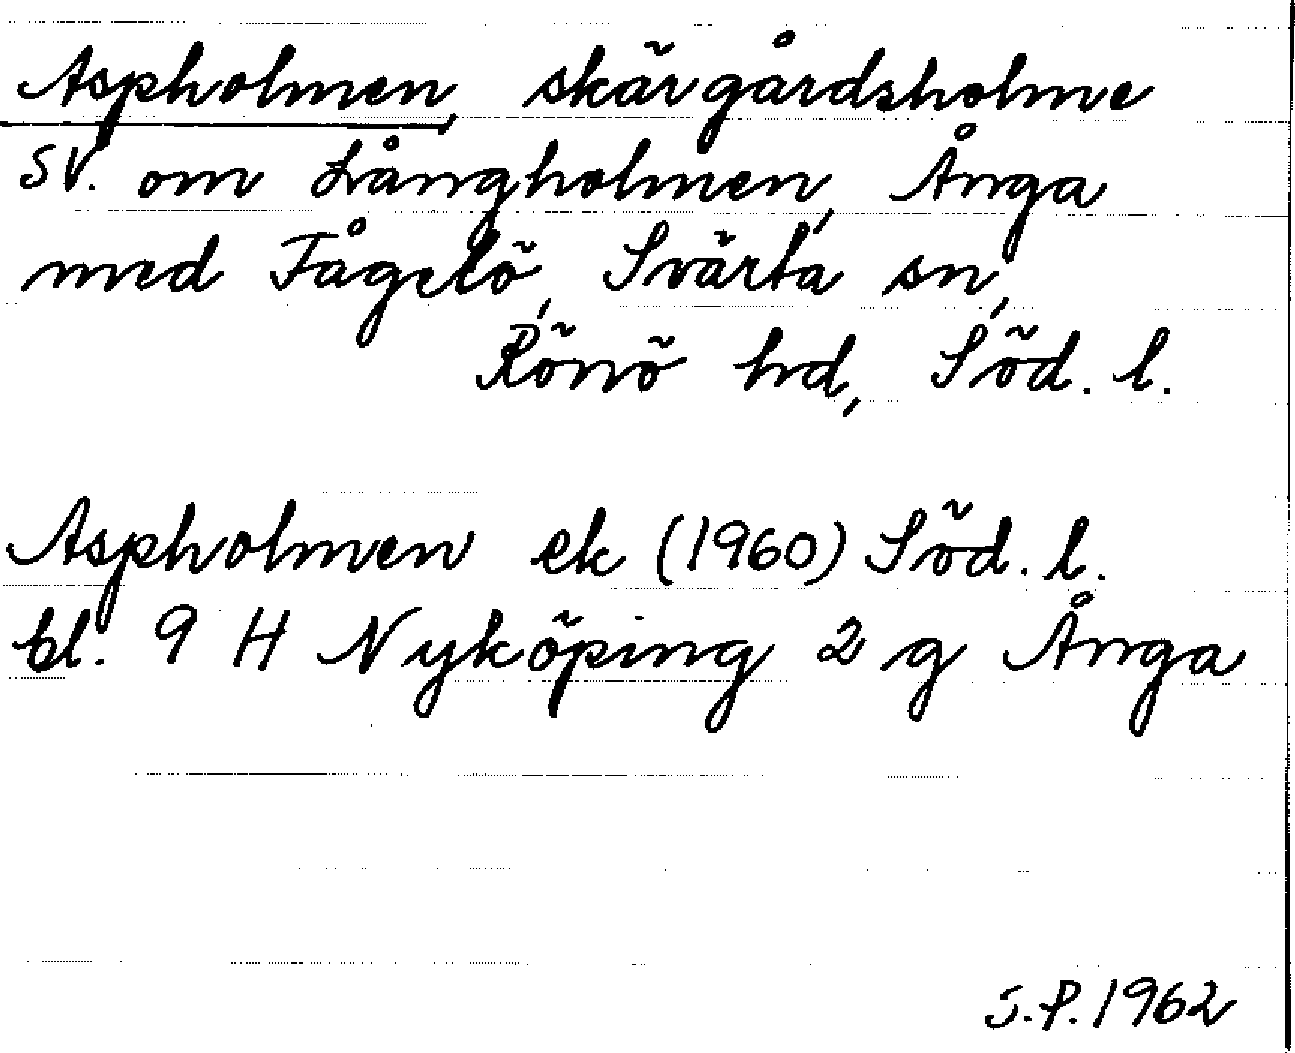 Aspholmen, skärgårdsholme
SV. om Långholmen, Ånga
med Fågelö, Svärta sn,
Rönö hd, Söd. l.
Aspholmen ek (1960) Söd. l.
bl. 9 H Nyköping 2 g Ånga
S.P. 1962